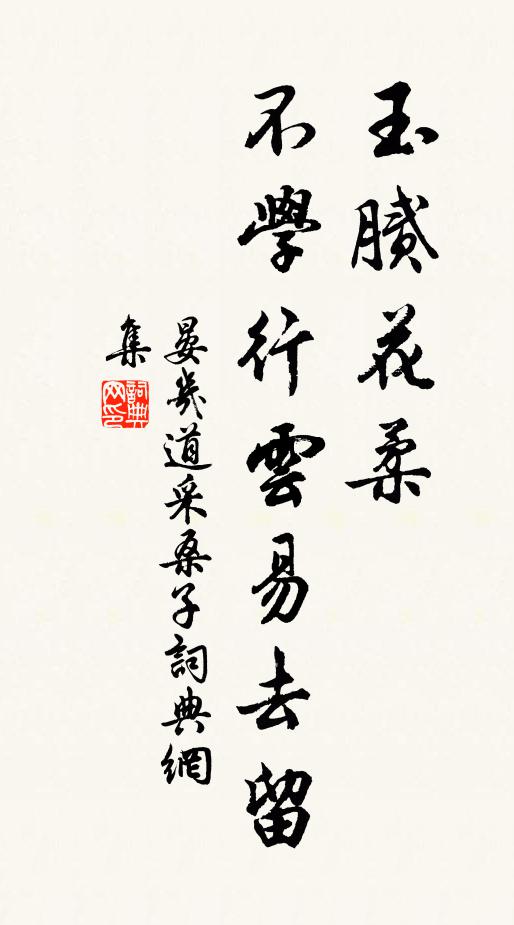 玉膩花柔
不學行雲易去留
晏幾道采桑子詞典網
集
詞典
网印